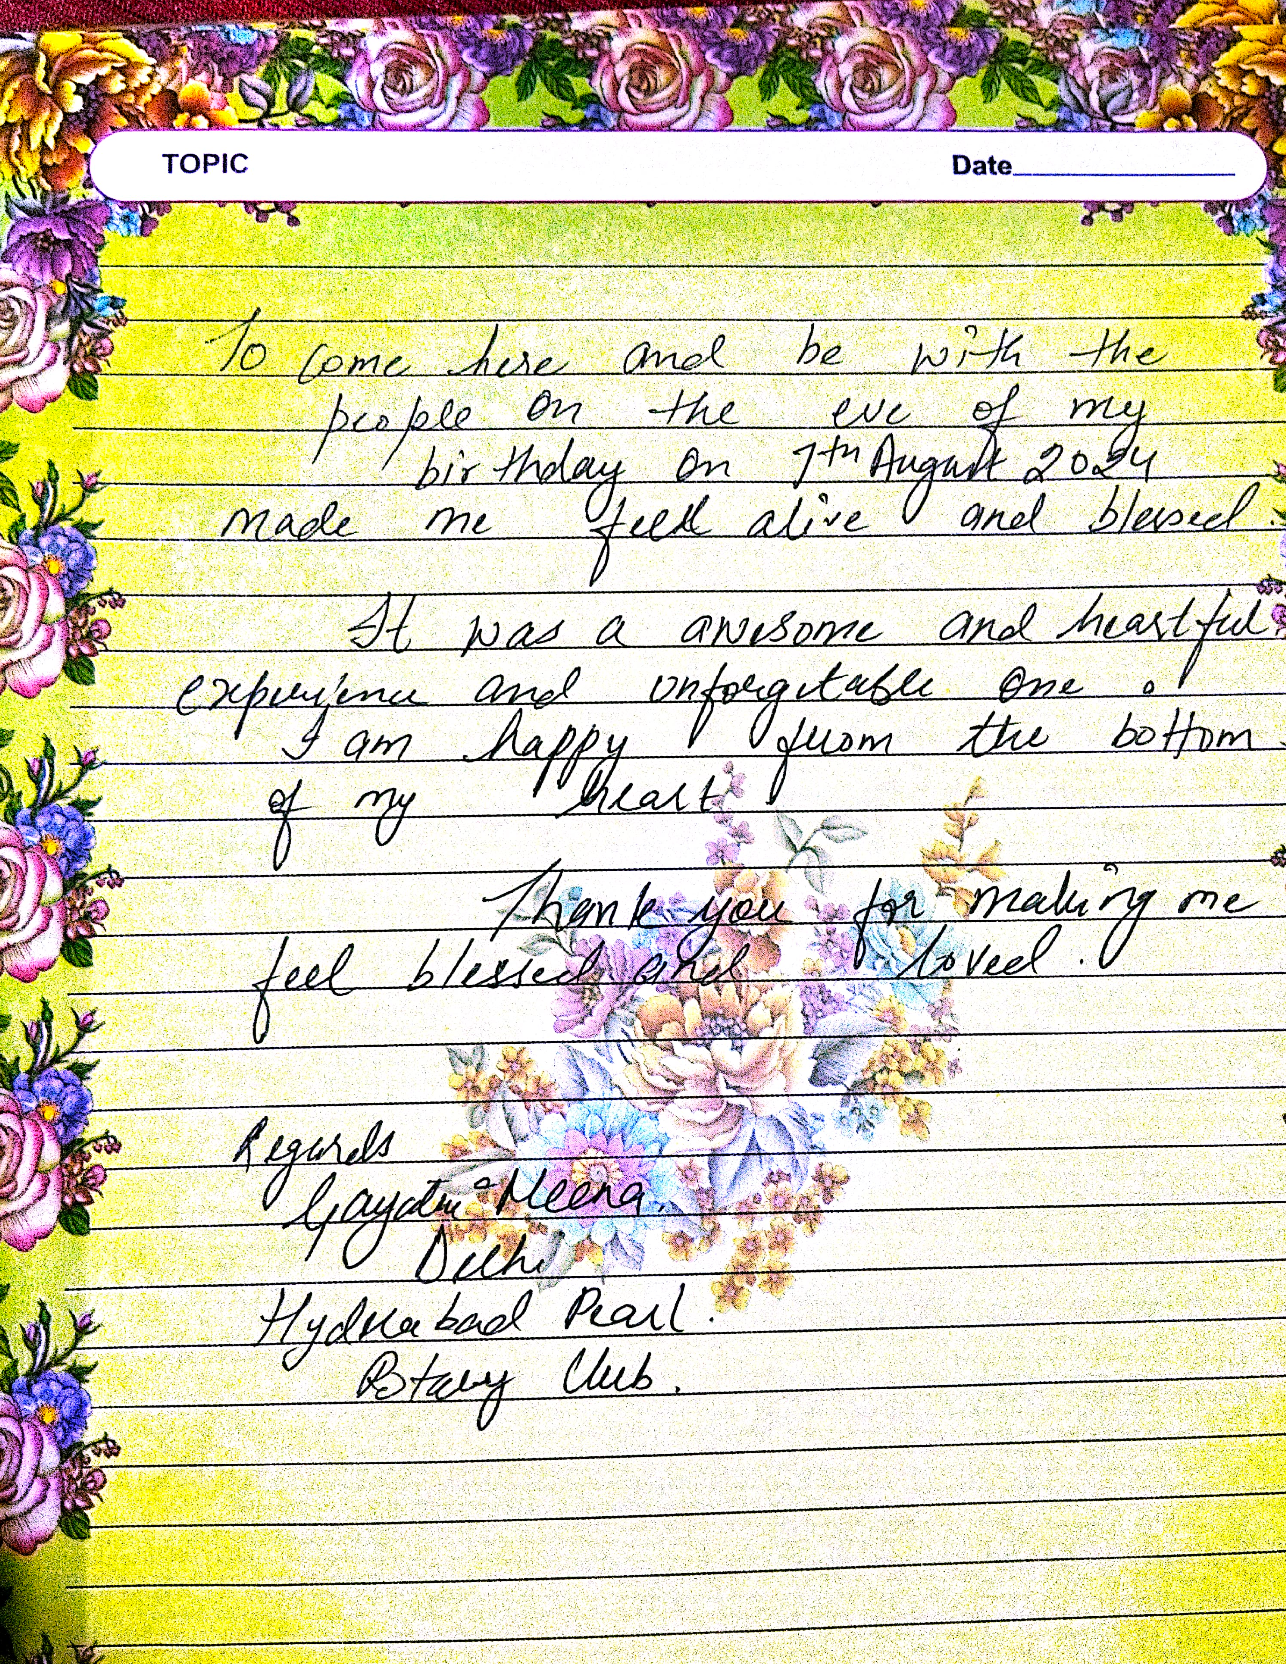 TOPIC Date
To come here and be with the
people on the eve of my
birthday on 7th August 2024
made me feel alive and blessed.
It was a awesome and heartful
experience and unforgetable one.
I am happy from the bottom
of my heart.
Thank you for making me
feel blessed and loved.
Regards
Gayatri Meena.
Delhi
Hyderabad Pearl.
Rotary Club.